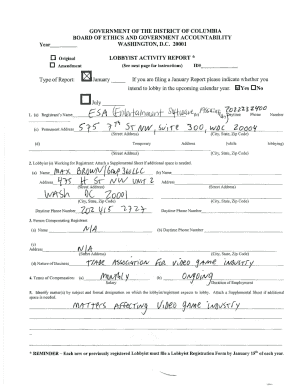 GOVERNMENT OF THE DISTRICT OF COLUMBIA
BOARD OF ETHICS AND GOVERNMENT ACCOUNTABILITY
Year WASHINGTON, D.C. 20001
Original LOBBYIST ACTIVITY REPORT *
Amendment (See next page for instructions) ID#
Type of Report X January If you are filing a January Report please indicate whether you
intend to lobby in the upcoming calendar year. Yes No
July
1. (a) Registrant's Name ESA (Entertainment Software (b) 2022232400
Daytime Phone Number
(c) Permanent Address 575 7th St NW, Suite 300, WDC 20004
(Street Address) (City, State, Zip Code)
(d) Temporary Address (while lobbying)
(Street Address) (City, State, Zip Code)
2. Lobbyist (s) Working for Registrant: Attach a Supplement Sheet if Additional space is needed.
(a) Name MAX BROWN/Group 360 LLC (b) Name
Address 475 H St NW UNIT 2 Address
(Street Address) (Street Address)
WASH DC 20001
(City, State, Zip Code) (City, State, Zip Code)
Daytime Phone Number 202 415 2727 Daytime Phone Number
3. Person Compensating Registrant:
(a) Name N/A (b)
Daytime Phone Number
(c) Address N/A
(Street Address) (City, State, Zip Code)
(d) Nature of Business TRADE ASSOCIATION FOR VIDEO GAME INDUSTRY
4. Terms of Compensation: (a) Monthly (b) ONGOING
Salary Duration of Employment
5. Identify matter(s) by subject and formal designation on which the lobbyist/registrant expects to lobby. Attach a Supplemental Sheet if additional
space is needed.
MATTERS AFFECTING VIDEO GAME INDUSTRY
* REMINDER – Each new or previously registered Lobbyist must file a Lobbyist Registration Form by January 15th of each year.